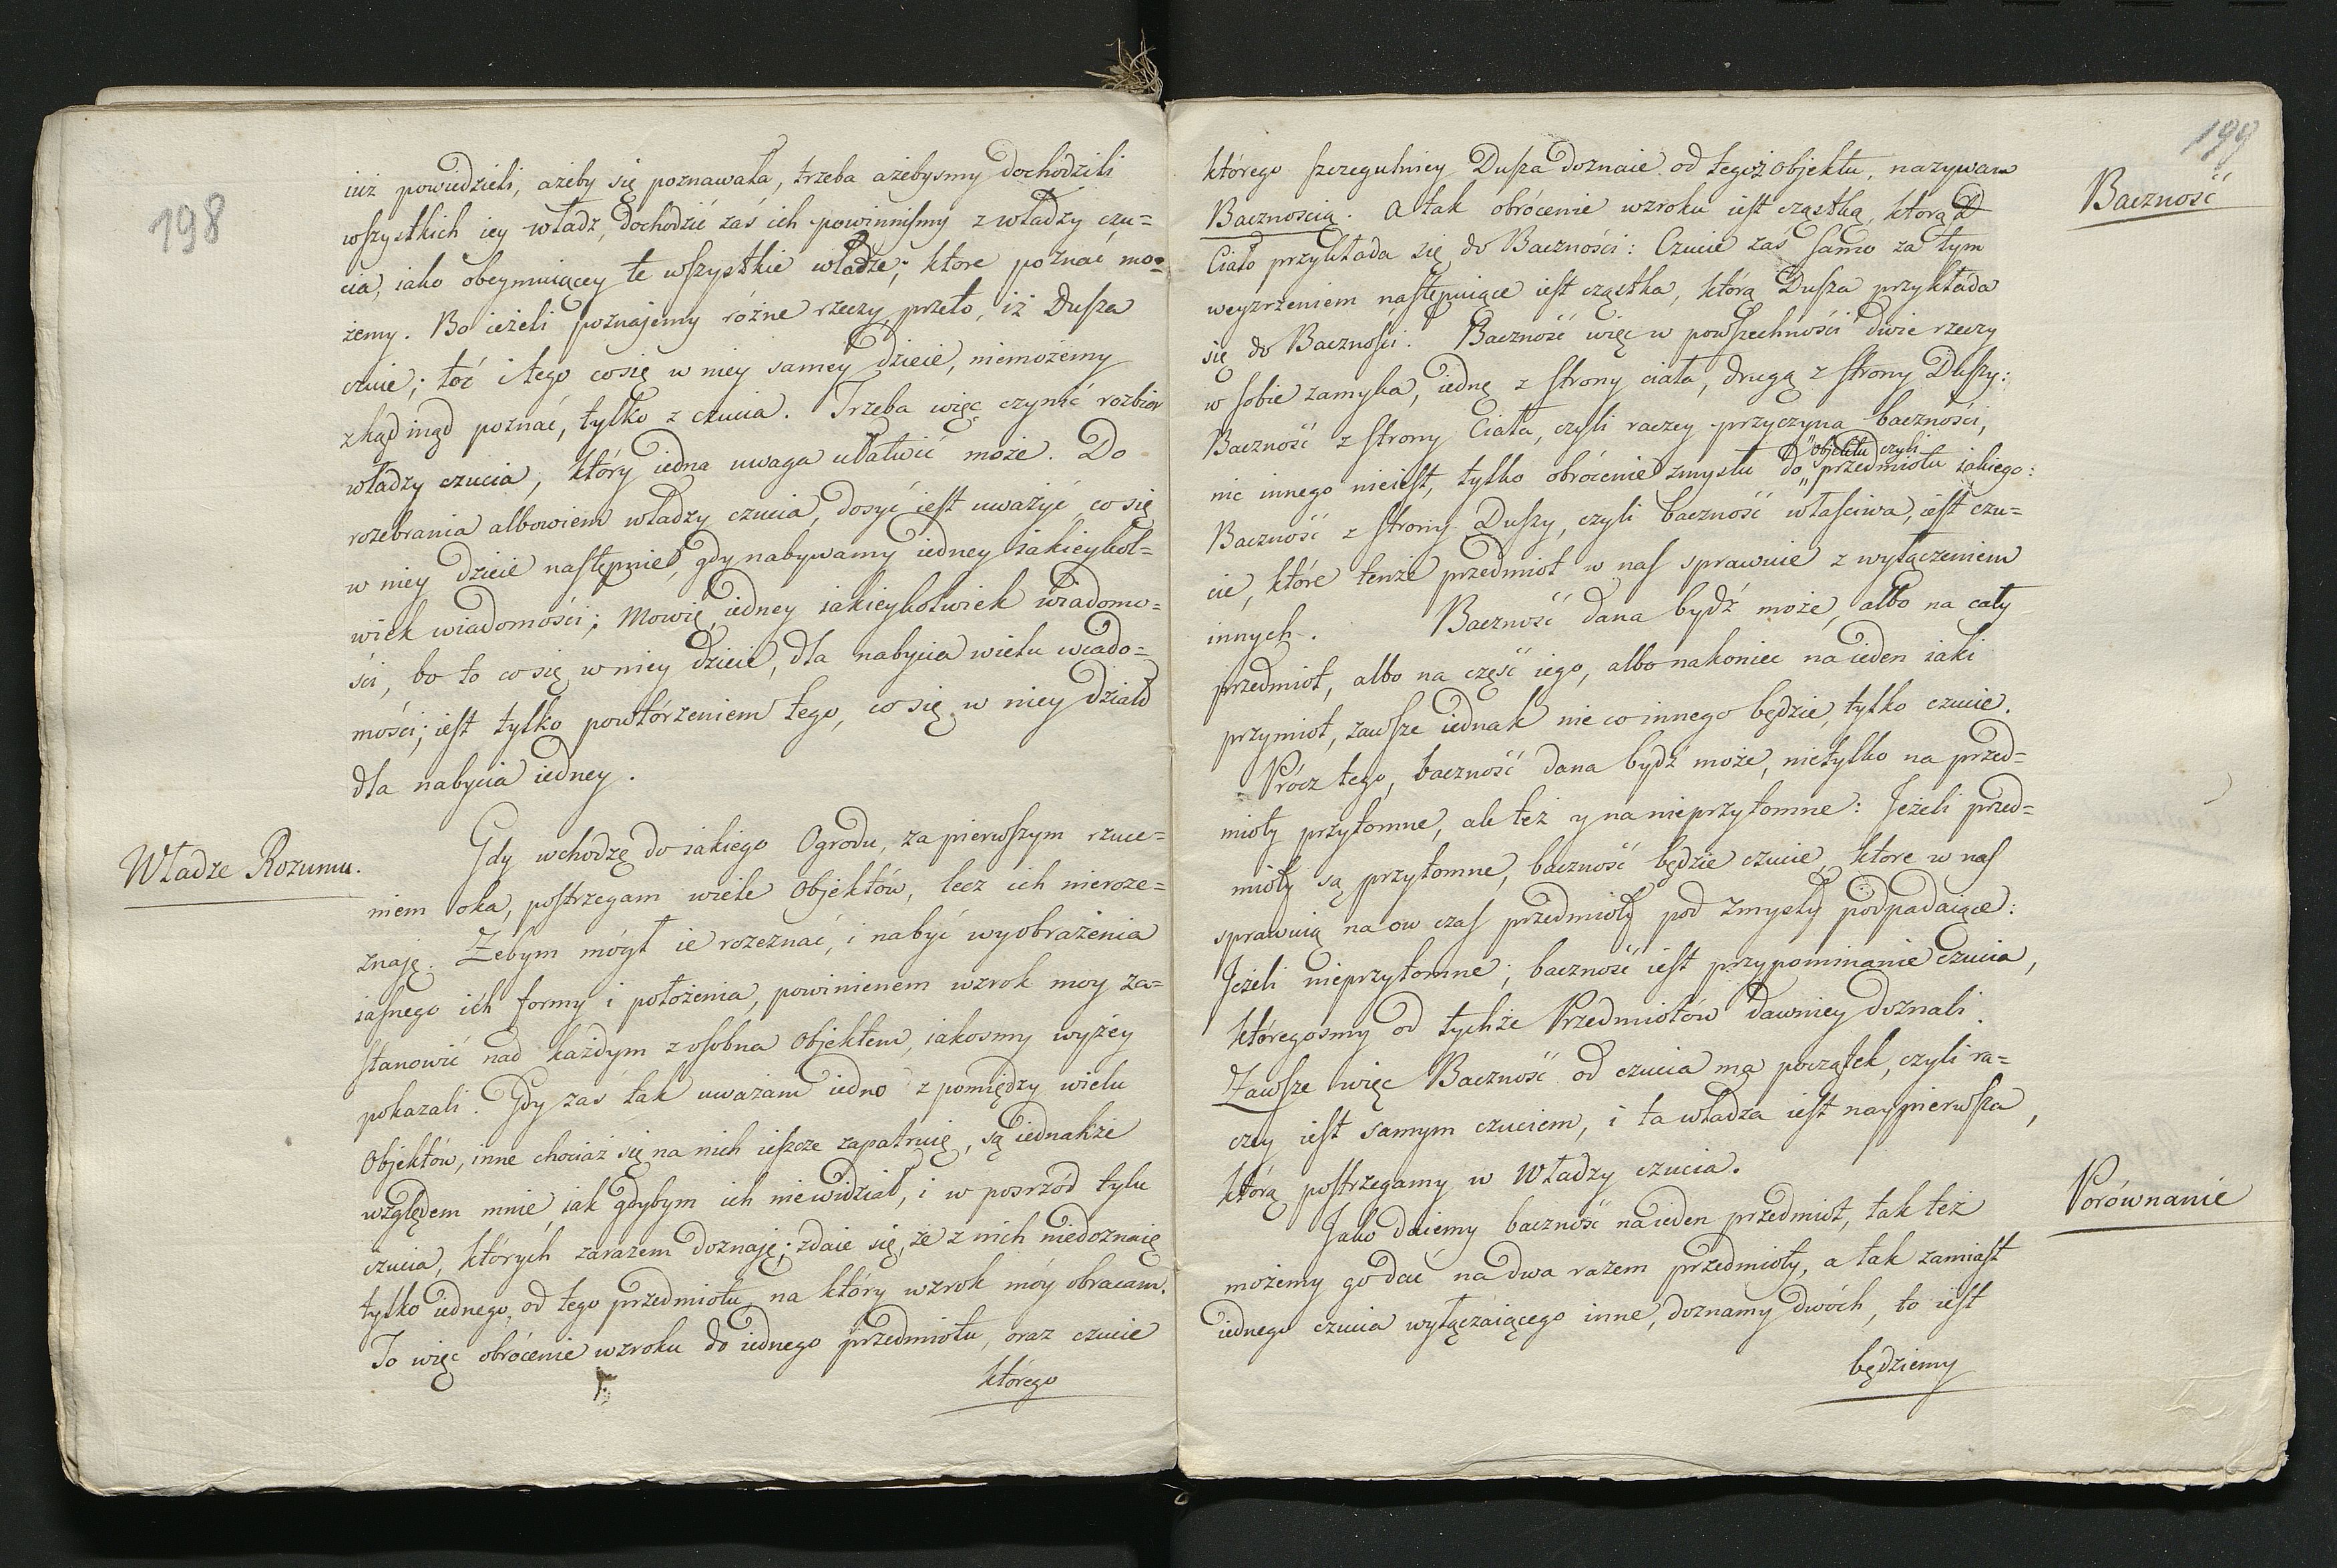 198
iuż powiedzieli, ażeby się poznawała, trzeba ażebysmy dochodzili
wszystkich iey władz, dochodzić zaś ich powinnismy z władzy czu=
cia, iako obeymuiącey te wszystkie władze; ktore poznać mo=
żemy. Bo ieżeli poznajemy różne rzeczy przeto, iż Dusza
czuie; toć i tego co się w niey samey dzieie, niemożemy
zkąd inąd poznać, tylko z czucia. Trzeba więc czynić rozbior
władzy czucia, który iedna uwaga ułatwić może. Do
rozebrania albowiem władzy czucia, dosyć iest uważyć co się
w niey dzieie następnie, gdy nabywamy iedney iakieykol=
wiek wiadomości; Mowię, iedney iakieykolwiek wiadomo=
ści, bo to co się w niey dzieie, dla nabycia wielu wiado=
mości; iest tylko powtórzeniem tego, co się w niey działo
dla nabycia iedney.
Władze Rozumu.
Gdy wchodzę do iakiego Ogrodu, za pierwszym rzuce=
niem oka, postrzegam wiele Objektów, lecz ich nieroze=
znaję. Żebym mógł ie rozeznać, i nabyć wyobrażenia
iasnego ich formy i położenia, powinienem wzrok moy za=
stanowić nad każdym z osobna Objektem, iakosmy wyżey
pokazali. Gdy zaś tak uważam iedno z pomiędzy wielu
Objektów, inne chociaż się na nich ieszcze zapatruię, są iednakże
względem mnie, iak gdybym ich niewidział, i w posrzód tylu
czucia, których zarazem doznaję; zdaie się, że z nich niedoznaię
tylko iednego, od tego przedmiotu, na który wzrok móy obracam.
To więc obrócenie wzroku do iednego przedmiotu, oraz czucie
którego
199
którego szczegulniey Dusza doznaie od tegoż objektu, nazywam
Baczność
Bacznoscią. A tak obrócenie wzroku iest cząstką, którą
Ciało przykłada się do Baczności: Czucie zaś samo za tym
weyzrzeniem następuiące iest cząstka, którą Dusza przykłada
się do Baczności. Baczność więc w powszechności dwie rzeczy
w sobie zamyka, iednę z strony ciała, drugą z strony Duszy:
Baczność z strony Ciała, czyli raczey przyczyna baczności,
objektu czyli
nic innego nieiest, tylko obrócenie zmysłu do „ przedmiotu iakiego:
Baczność z strony Duszy, czyli baczność własciwa, iest czu=
cie, które tenże przedmiot w nas sprawuie z wyłączeniem
innych. Baczność dana bydź może, albo na cały
przedmiot, albo na część iego, albo nakoniec na ieden iaki
przymiot, zawsze iednak nie co innego będzie, tylko czucie.
Prócz tego, baczność dana bydź może, nietylko na przed=
mioty przytomne, ale też y na nieprzytomne: Jeżeli przed=
mioty są przytomne, baczność będzie czucie, ktore w nas
sprawuią na ow czas przedmioty pod zmysły podpadaiące:
Jeżeli nieprzytomne; baczność iest przypominanie czucia,
któregosmy od tychże Przedmiotów dawniey doznali.
Zawsze więc Baczność od czucia ma początek, czyli ra=
czey iest samym czuciem, i ta władza iest naypierwsza,
którą postrzegamy w Władzy czucia.
Porównanie
Jako daiemy baczność na ieden przedmiot, tak też
możemy go dać na dwa razem przedmioty, a tak zamiast
iednego czucia wyłączaiącego inne, doznamy dwóch, to iest
będziemy